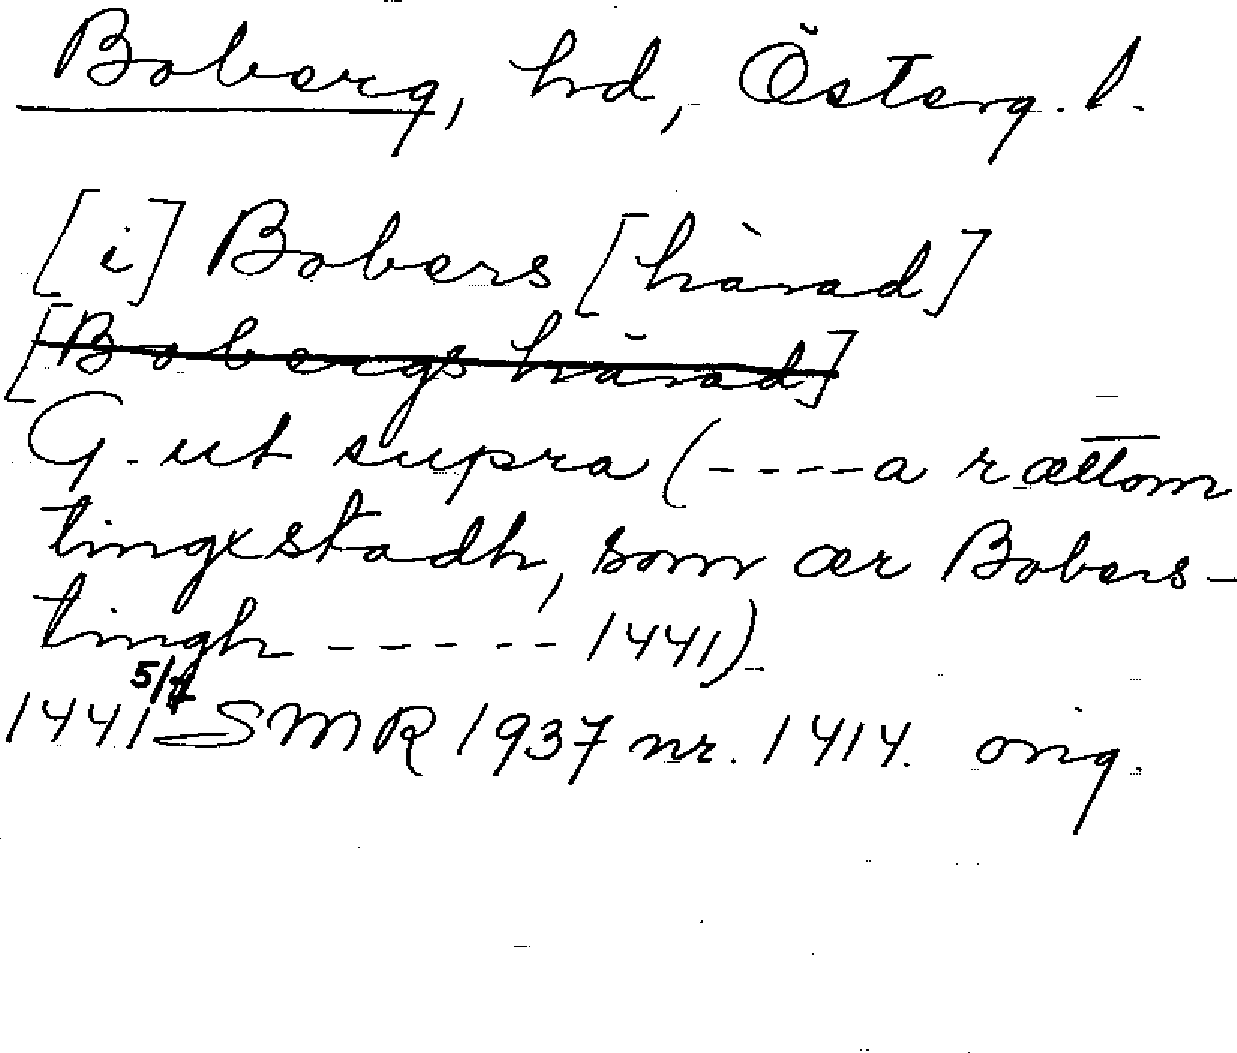 Boberg, hd, Österg. l.
[i] Bobers [härad]
[Bobergs härad]
G. ut supra (----a rættom
tingxstadh, som ær Bobers-
tingh ----- 1441).
1441 5/7 SMR 1937 nr. 1414. orig.